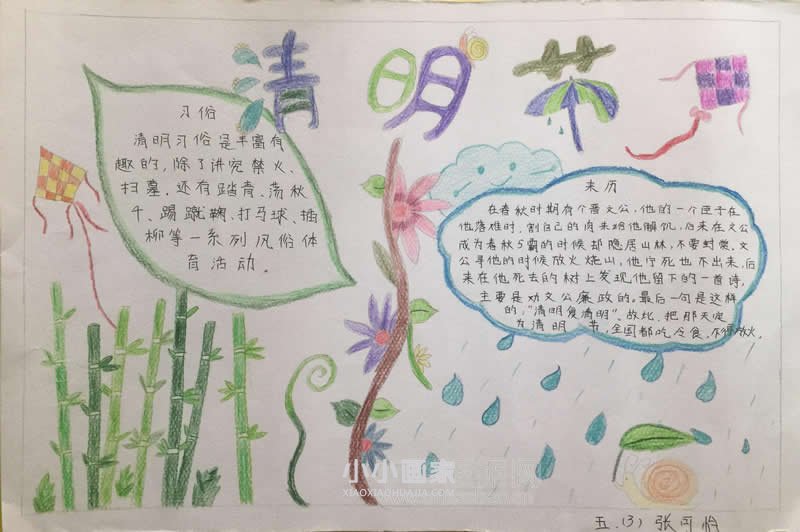 清明节
习俗
清明习俗是丰富有
趣的,除了讲究禁火、
扫墓,还有踏青、荡秋
千、踢蹴鞠、打马球、插
柳等一系列风俗体
育活动。
来历
在春秋时期有个晋文公,他的一个臣子在
他落难时,割自己的肉来给他解饥,后来在文公
成为春秋5霸的时候却隐居山林,不要封赏。文
公寻他的时候放火烧山,他宁死也不出来,后
来在他死去的树上发现他留下的一首诗,
主要是劝文公廉政的。最后一句是这样
的:“清明复清明”。故此,把那天定
为清明节,全国都吃冷食,不得放火。
小小画家
XIAOXIAOHUAJIA.COM
五.(3) 张可怡